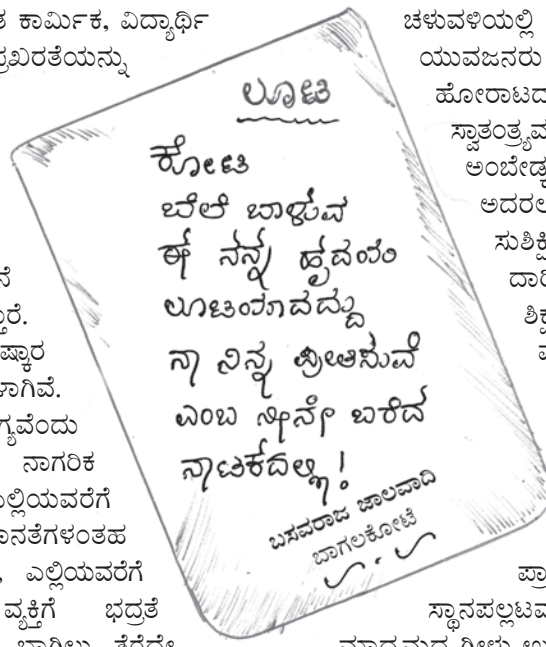 ಕಾರ್ಮಿಕ, ವಿದ್ಯಾರ್ಥಿ
ಪ್ರಖರತೆಯನ್ನು
ಗ್ಯವೆಂದು
ನಾಗರಿಕ
ಲ್ಲಿಯವರೆಗೆ
ಾನತೆಗಳಂತಹ
, ಎಲ್ಲಿಯವರೆಗೆ
ವ್ಯಕ್ತಿಗೆ ಭದ್ರತೆ
ಬಾಗಿಲು ತೆರೆದೇ
ಲೂಟಿ
ಕೋಟಿ
ಬೆಲೆ ಬಾಳುವ
ಈ ನನ್ನ ಹೃದಯ
ಲೂಟಿಯಾದದ್ದು
ನಾ ನಿನ್ನ ಪ್ರೀತಿಸುವೆ
ಎಂಬ ನೀನೇ ಬರೆದ
ನಾಟಕದಲ್ಲಿ!
ಬಸವರಾಜ ಜಾಲವಾದಿ
ಬಾಗಲಕೋಟೆ
ಚಳುವಳಿಯಲ್ಲಿ
ಯುವಜನರು
ಹೋರಾಟದ
ಸ್ವಾತಂತ್ರ್ಯ
ಅಂಬೇಡ್ಕ
ಅದರಲ
ಸುಶಿಕ್ಷಿ
ದಾರಿ
ಶಿಕ್ಷ
ಪ್ರಾ
ಸ್ಥಾನಪಲ್ಲಟ